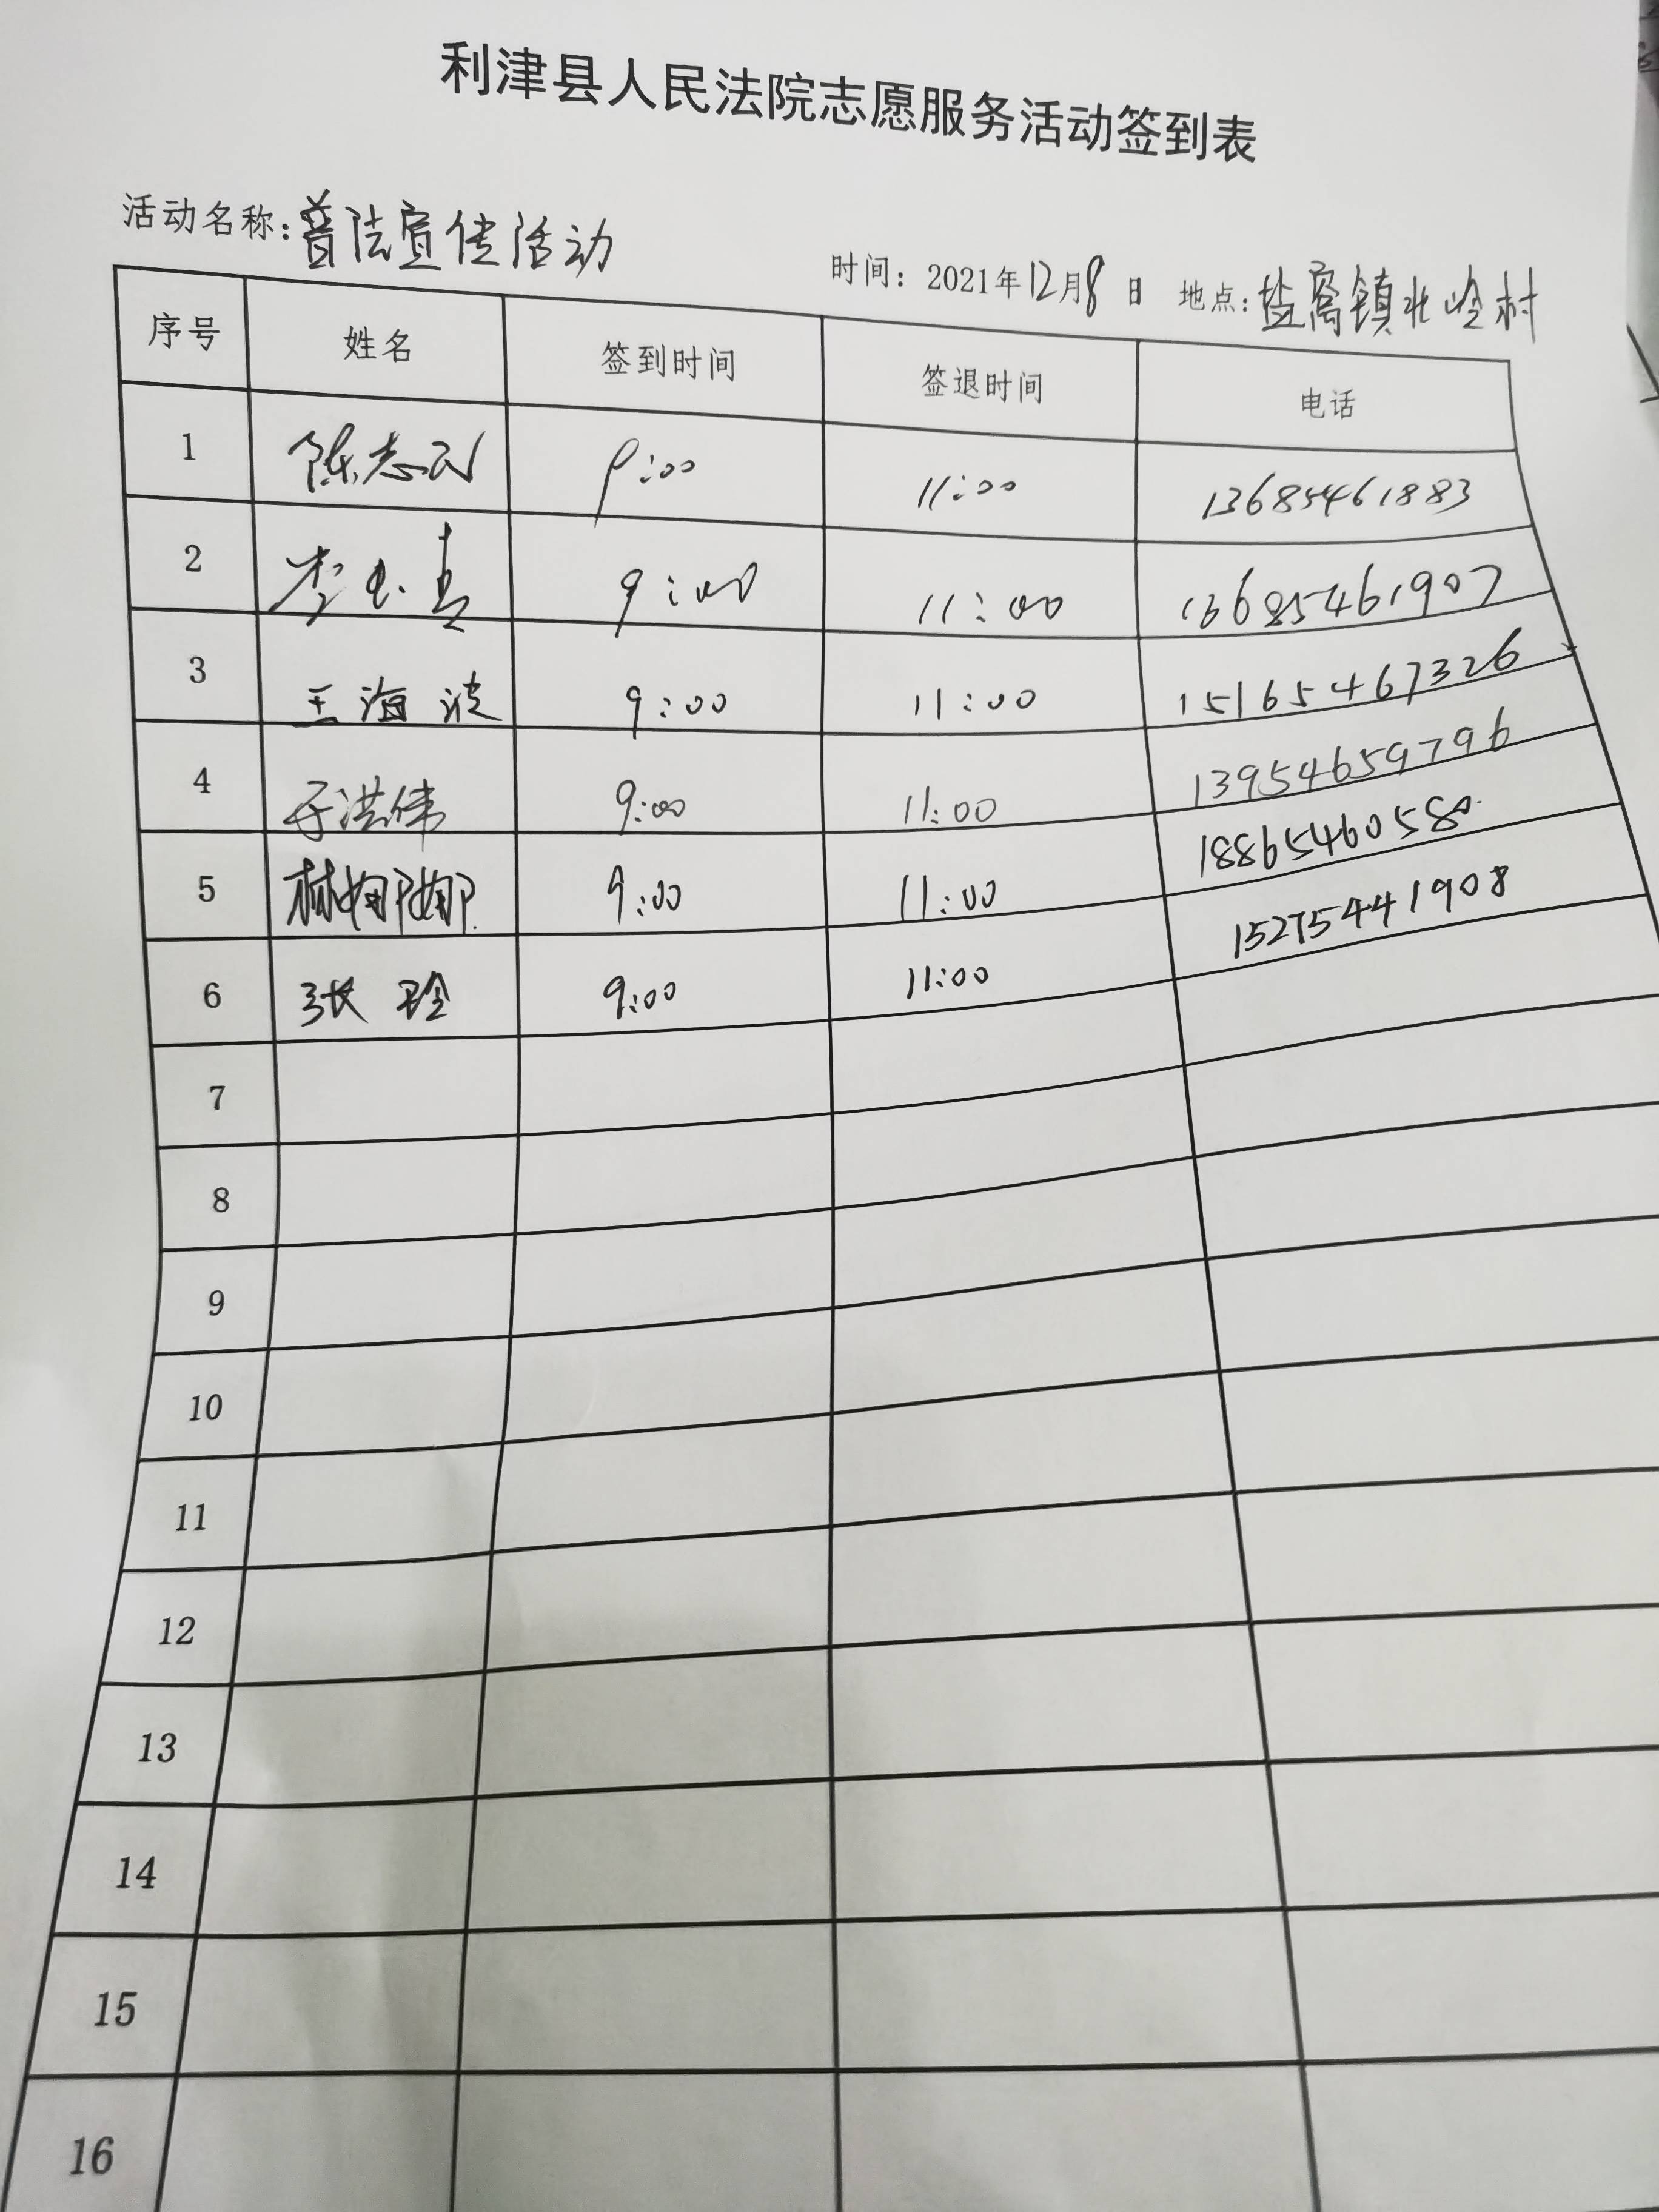 利津县人民法院志愿服务活动签到表
活动名称:普法宣传活动 时间:2021年12月8日 地点:盐窝镇北岭村
序号 姓名 签到时间 签退时间 电话
1 陈志 9:00 11:00 13685461883
2 李 9:00 11:00 13685461907
3 王海波 9:00 11:00 15165467326
4 于洪伟 9:00 11:00 13954659796
5 林娜娜 9:00 11:00 18865460580
6 张玲 9:00 11:00 15275441908
7
8
9
10
11
12
13
14
15
16